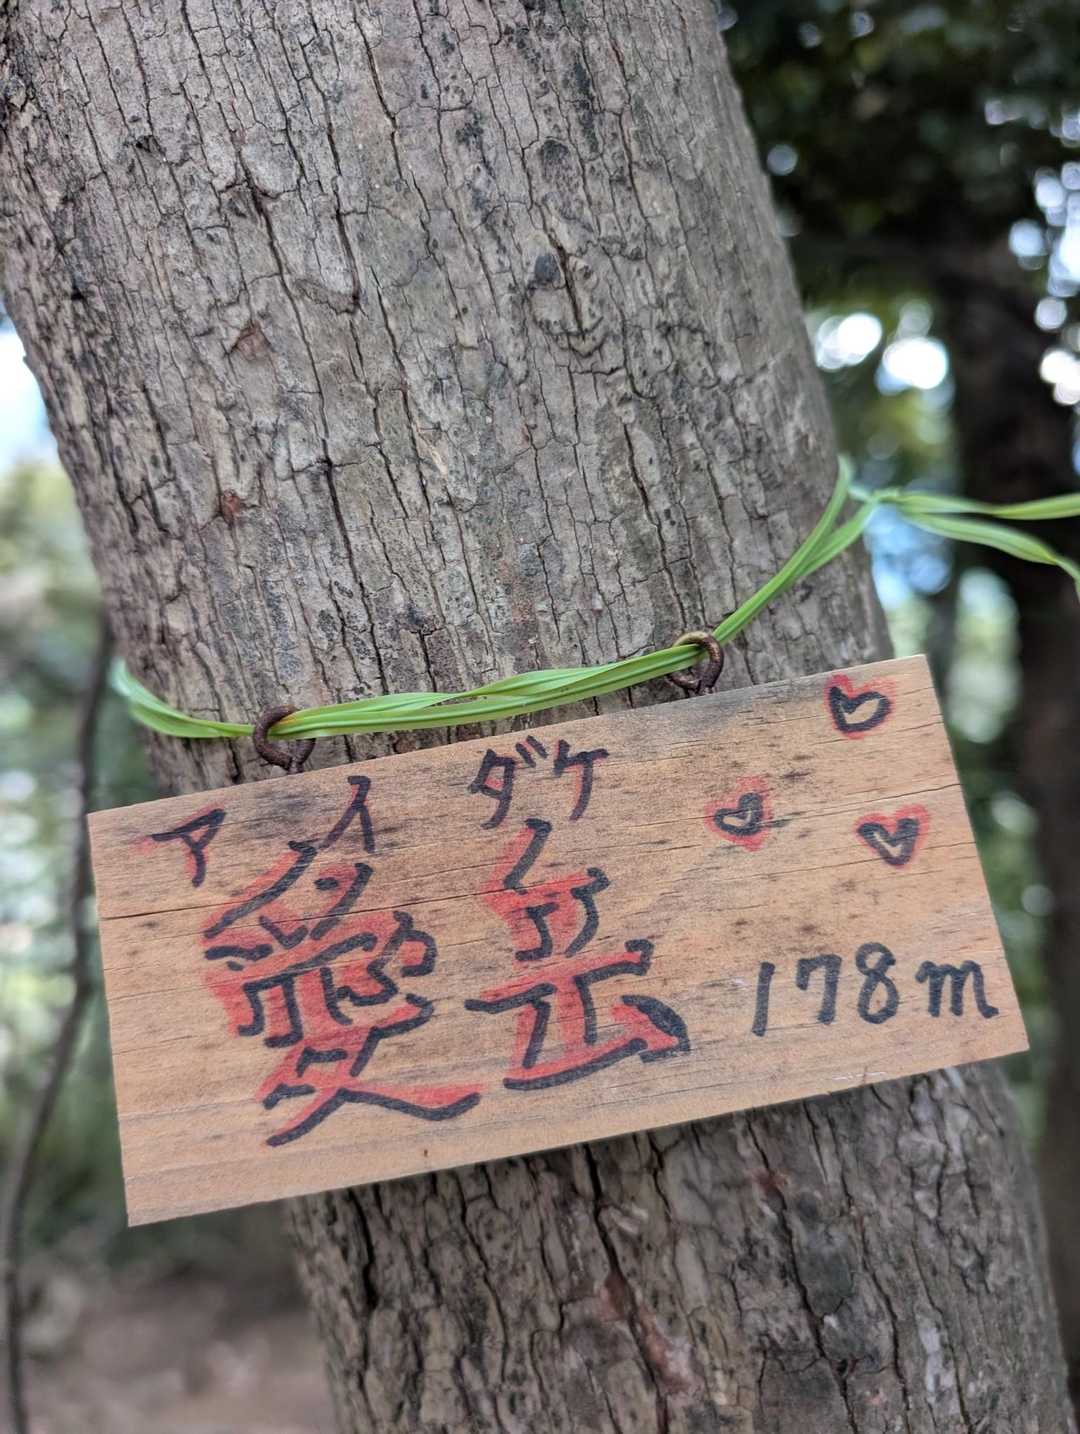 アイダケ
愛岳
178m